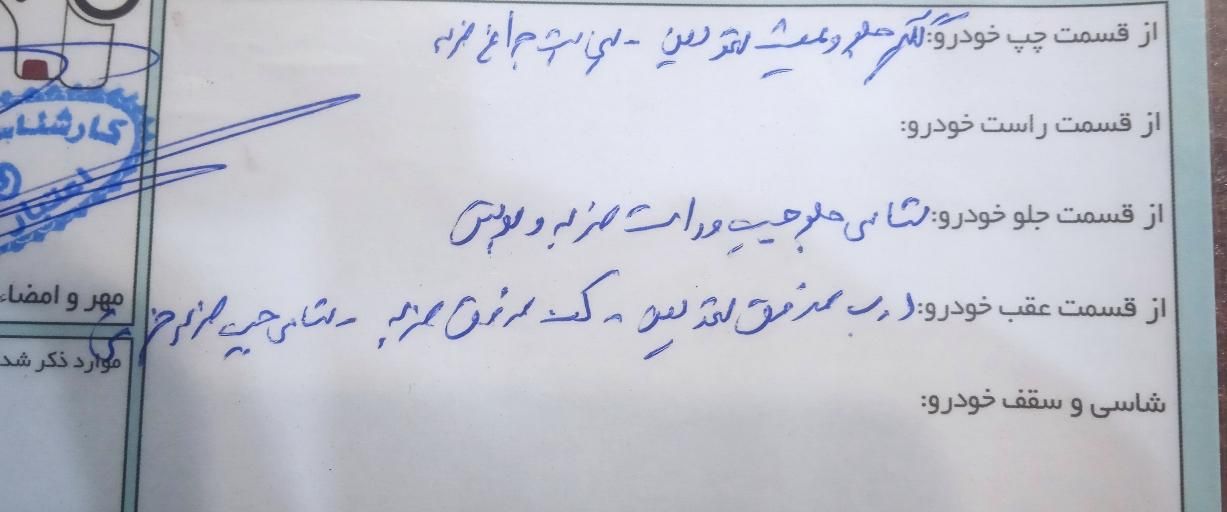 از قسمت چپ خودرو: گلگیر جلو و عقب تعویض - پشت چراغ ضربه
از قسمت راست خودرو:
از قسمت جلو خودرو: شاسی جلو چپ و راست ضربه و
از قسمت عقب خودرو: درب صندوق تعویض - کف صندوق ضربه - شاسی چپ ضربه
شاسی و سقف خودرو:
مهر و امضاء
موارد ذکر شد